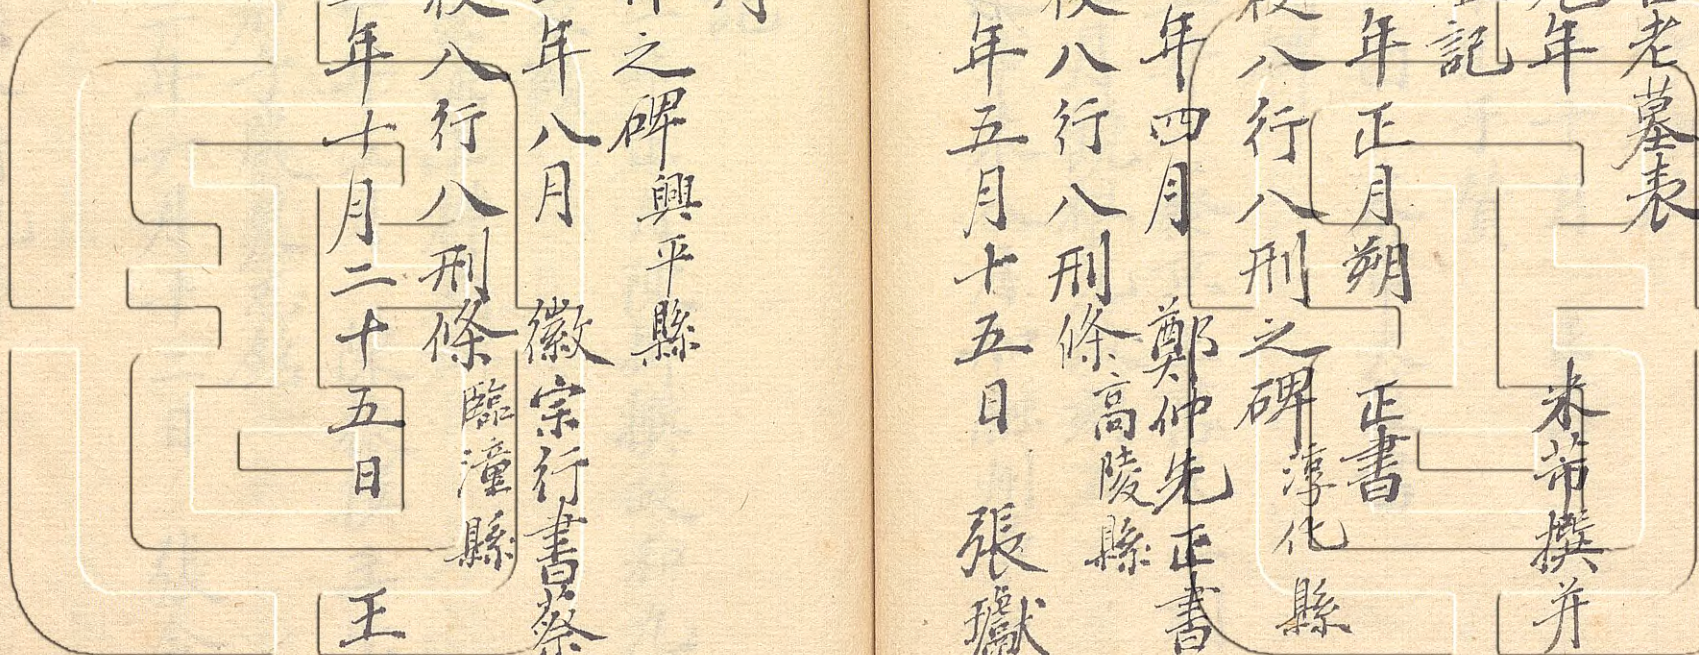 老墓表
年 米芾撰并
記
年正月朔 正書
八行八刑之碑 淳化縣
年四月 鄭仲先正書
八行八刑條 高陵縣
年五月十五日 張
月
之碑 興平縣
年八月 徽宗行書蔡
八行八刑條 臨潼縣
年十月二十五日 王